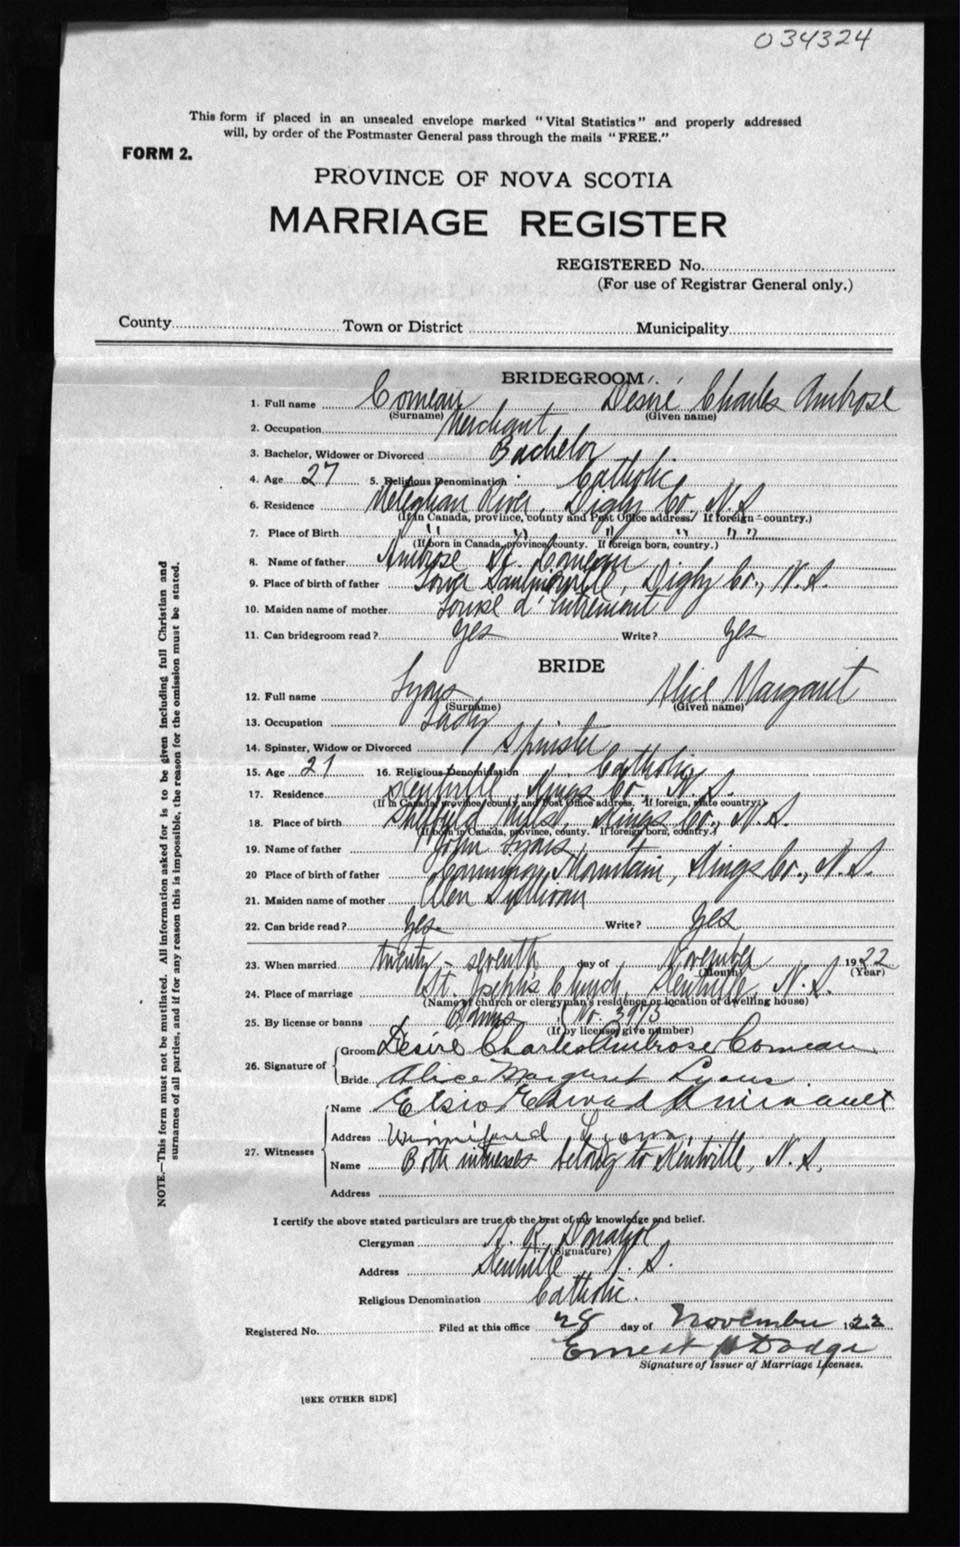 034324
This form if placed in an unsealed envelope marked "Vital Statistics" and properly addressed
will, by order of the Postmaster General pass through the mails "FREE."
FORM 2.
PROVINCE OF NOVA SCOTIA
MARRIAGE REGISTER
REGISTERED No.
(For use of Registrar General only.)
County Town or District Municipality
BRIDEGROOM
1. Full name Comeau Desiré Charles Ambrose
(Surname) (Given name)
2. Occupation Merchant
3. Bachelor, Widower or Divorced Bachelor
4. Age 27 5. Religious Denomination Catholic
6. Residence Meteghan River, Digby Co., N.S.
(If in Canada, province, county and Post Office address. If foreign - country.)
7. Place of Birth " " " " " "
(If born in Canada, province, county. If foreign born, country.)
8. Name of father Ambrose H. Comeau
9. Place of birth of father Lower Saulnierville, Digby Co., N.S.
10. Maiden name of mother Louise d'Entremont
11. Can bridegroom read? Yes Write? Yes
BRIDE
12. Full name Lyons Alice Margaret
(Surname) (Given name)
13. Occupation Lady
14. Spinster, Widow or Divorced Spinster
15. Age 21 16. Religious Denomination Catholic
17. Residence Kentville, Kings Co., N.S.
(If in Canada, province, county, and Post Office address. If foreign, state country.)
18. Place of birth Sheffield Mills, Kings Co., N.S.
(If born in Canada, province, county. If foreign born, country.)
19. Name of father John Lyons
20 Place of birth of father Mountain, Kings Co., N.S.
21. Maiden name of mother Ellen Sullivan
22. Can bride read? Yes. Write? Yes
23. When married twenty-seventh day of November 1922
(Month) (Year)
24. Place of marriage St. Joseph's Church, Kentville, N.S.
(Name of church or clergyman's residence or location of dwelling house)
25. By license or banns Banns (No. 3975
(If by license, give number)
26. Signature of
Groom Desiré Charles Ambrose Comeau
Bride Alice Margaret Lyons
27. Witnesses
Name Edward
Address Winnifred Lyons
Name Both witnesses belong to Kentville, N.S.
Address
I certify the above stated particulars are true to the best of my knowledge and belief.
Clergyman Donahoe
(Signature)
Address Kentville N.S.
Religious Denomination Catholic.
Registered No. Filed at this office 28 day of November 1922
Ernest Dodge
Signature of Issuer of Marriage Licenses.
[SEE OTHER SIDE]
NOTE.—This form must not be mutilated. All information asked for is to be given including full Christian and
surnames of all parties, and if for any reason this is impossible, the reason for the omission must be stated.